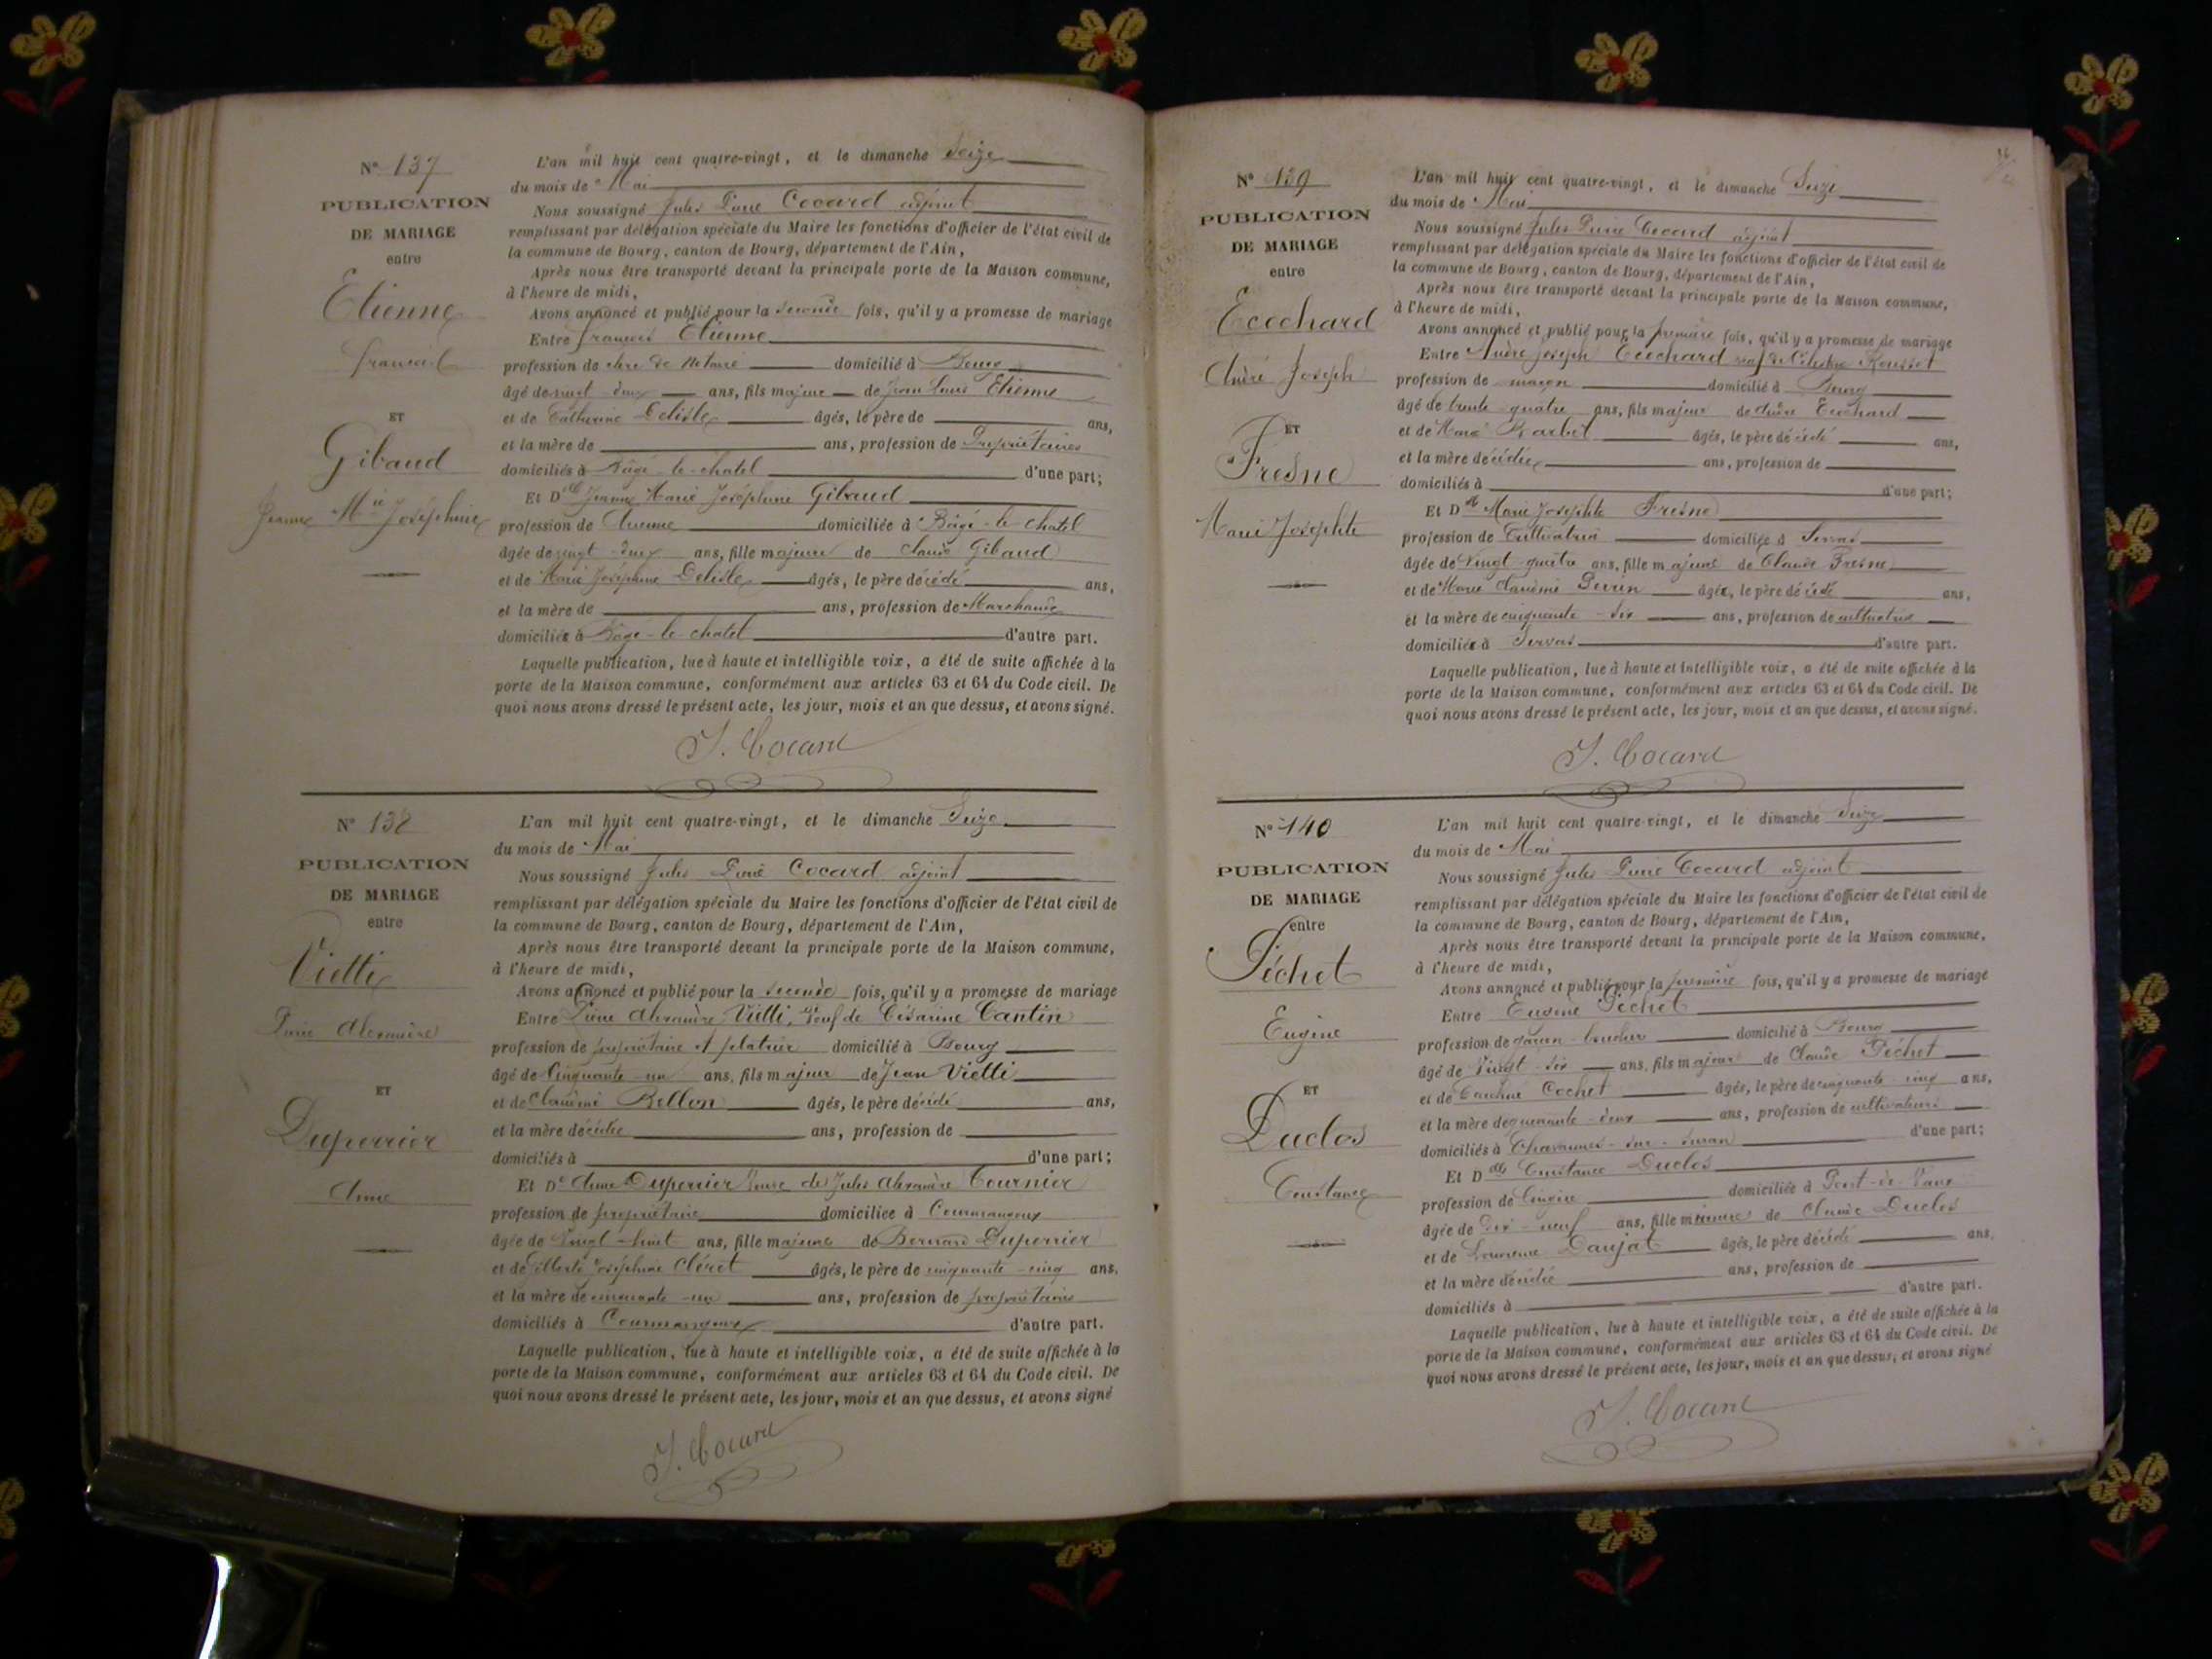 N° 137
PUBLICATION
DE MARIAGE
entre
Etienne
François
ET
Gibaud
Jeanne Mie Joséphine
L'an mil huit cent quatre-vingt, et le dimanche Seize
du mois de Mai
Nous soussigné Jules Pierre Cocard adjoint
remplissant par délégation spéciale du Maire les fonctions d'officier de l'état civil de
la commune de Bourg, canton de Bourg, département de l'Ain,
Après nous être transporté devant la principale porte de la Maison commune,
à l'heure de midi,
Avons annoncé et publié pour la seconde fois, qu'il y a promesse de mariage
Entre François Etienne
profession de clerc de Notaire domicilié à Bourg
âgé de vingt-deux ans, fils majeur de Jean Louis Etienne
et de Catherine Delisle âgés, le père de ans,
et la mère de ans, profession de Propriétaires
domiciliés à Bâgé-le-chatel d'une part;
Et Dlle Jeanne Marie Joséphine Gibaud
profession de Aucune domiciliée à Bâgé-le-chatel
âgée de vingt-deux ans, fille majeure de Claude Gibaud
et de Marie Joséphine Delisle âgés, le père décédé ans,
et la mère de ans, profession de Marchande
domiciliés à Bâgé-le-chatel d'autre part.
Laquelle publication, lue à haute et intelligible voix, a été de suite affichée à la
porte de la Maison commune, conformément aux articles 63 et 64 du Code civil. De
quoi nous avons dressé le présent acte, les jour, mois et an que dessus, et avons signé.
J. Cocard
N° 138
PUBLICATION
DE MARIAGE
entre
Vietti
Pierre Alexandre
ET
Duperrier
Anne
L'an mil huit cent quatre-vingt, et le dimanche Seize
du mois de Mai
Nous soussigné Jules Pierre Cocard adjoint
remplissant par délégation spéciale du Maire les fonctions d'officier de l'état civil de
la commune de Bourg, canton de Bourg, département de l'Ain,
Après nous être transporté devant la principale porte de la Maison commune,
à l'heure de midi,
Avons annoncé et publié pour la seconde fois, qu'il y a promesse de mariage
Entre Pierre Alexandre Vietti, veuf de Césarine Cantin
profession de propriétaire et platrier domicilié à Bourg
âgé de Cinquante-un ans, fils majeur de Jean Vietti
et de Claudine Bellon âgés, le père décédé ans,
et la mère décédée ans, profession de
domiciliés à d'une part;
Et De Anne Duperrier Veuve de Jules Alexandre Tournier
profession de propriétaire domiciliée à Courmangoux
âgée de Vingt-huit ans, fille majeure de Bernard Duperrier
et de Joséphine Cléret âgés, le père de cinquante-cinq ans.
et la mère de cinquante-un ans, profession de propriétaires
domiciliés à Courmangoux d'autre part.
Laquelle publication, lue à haute et intelligible voix, a été de suite affichée à la
porte de la Maison commune, conformément aux articles 63 et 64 du Code civil. De
quoi nous avons dressé le présent acte, les jour, mois et an que dessus, et avons signé
J. Cocard
N° 139
PUBLICATION
DE MARIAGE
entre
Ecochard
André Joseph
ET
Fresne
Marie Josephte
L'an mil huit cent quatre-vingt, et le dimanche Seize
du mois de Mai
Nous soussigné Jules Pierre Cocard adjoint
remplissant par délégation spéciale du Maire les fonctions d'officier de l'état civil de
la commune de Bourg, canton de Bourg, département de l'Ain,
Après nous être transporté devant la principale porte de la Maison commune,
à l'heure de midi,
Avons annoncé et publié pour la première fois, qu'il y a promesse de mariage
Entre André Joseph Ecochard veuf de Célestine Roussot
profession de maçon domicilié à Bourg
âgé de trente-quatre ans, fils majeur de André Ecochard
et de Marie Barbet âgés, le père décédé ans,
et la mère décédée ans, profession de
domiciliés à d'une part;
Et Dlle Marie Josephte Fresne
profession de Cultivatrice domiciliée à Servas
âgée de Vingt-quatre ans, fille majeure de Claude Fresne
et de Marie Claudine Perrin âgés, le père décédé ans,
et la mère de cinquante-six ans, profession de cultivatrice
domiciliés à Servas d'autre part.
Laquelle publication, lue à haute et intelligible voix, a été de suite affichée à la
porte de la Maison commune, conformément aux articles 63 et 64 du Code civil. De
quoi nous avons dressé le présent acte, les jour, mois et an que dessus, et avons signé.
J. Cocard
N° 140
PUBLICATION
DE MARIAGE
entre
Péchet
Eugène
ET
Duclos
Constance
L'an mil huit cent quatre-vingt, et le dimanche Seize
du mois de Mai
Nous soussigné Jules Pierre Cocard adjoint
remplissant par délégation spéciale du Maire les fonctions d'officier de l'état civil de
la commune de Bourg, canton de Bourg, département de l'Ain,
Après nous être transporté devant la principale porte de la Maison commune,
à l'heure de midi,
Avons annoncé et publié pour la première fois, qu'il y a promesse de mariage
Entre Eugène Péchet
profession de garçon-boucher domicilié à Bourg
âgé de Vingt-six ans, fils majeur de Claude Péchet
et de Caroline Cochet âgés, le père de cinquante-cinq ans,
et la mère de quarante-deux ans, profession de cultivateurs
domiciliés à Chavannes-sur-Suran d'une part;
Et Dlle Constance Duclos
profession de Lingère domiciliée à Pont-de-Vaux
âgée de dix-neuf ans, fille mineure de Claude Duclos
et de Laurence Daujat âgés, le père décédé ans,
et la mère décédée ans, profession de
domiciliés à d'autre part.
Laquelle publication, lue à haute et intelligible voix, a été de suite affichée à la
porte de la Maison commune, conformément aux articles 63 et 64 du Code civil. De
quoi nous avons dressé le présent acte, les jour, mois et an que dessus, et avons signé
J. Cocard